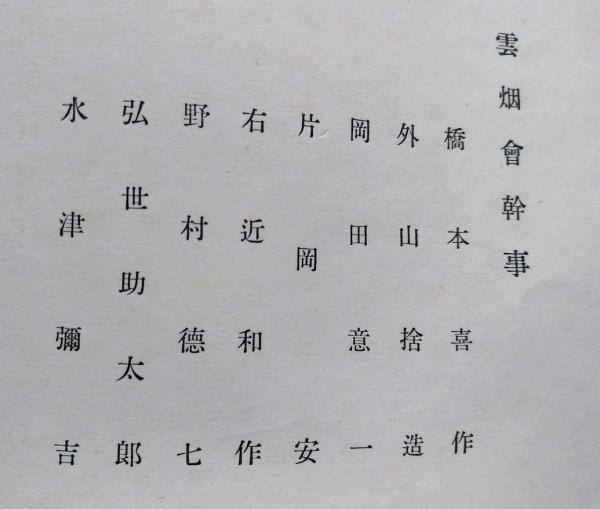 雲烟會幹事
橋本喜作
外山捨造
岡田意一
片岡安
右近和作
野村德七
弘世助太郎
水津彌吉